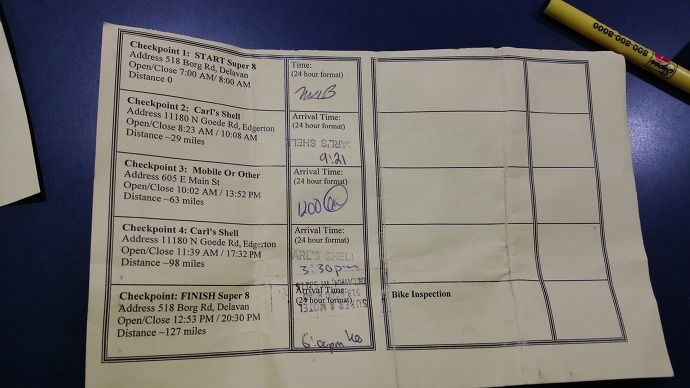 Checkpoint 1: START Super 8
Address 518 Borg Rd, Delavan
Open/Close 7:00 AM/ 8:00 AM
Distance 0
Time:
(24 hour format)
Checkpoint 2: Carl's Shell
Address 11180 N Goede Rd, Edgerton
Open/Close 8:23 AM / 10:08 AM
Distance ~29 miles
Arrival Time:
(24 hour format)
CARL'S SHELL
9:21
Checkpoint 3: Mobile Or Other
Address 605 E Main St
Open/Close 10:02 AM / 13:52 PM
Distance ~63 miles
Arrival Time:
(24 hour format)
1200
Checkpoint 4: Carl's Shell
Address 11180 N Goede Rd, Edgerton
Open/Close 11:39 AM / 17:32 PM
Distance ~98 miles
Arrival Time:
(24 hour format)
CARL'S SHELL
3:30pm
Checkpoint: FINISH Super 8
Address 518 Borg Rd, Delavan
Open/Close 12:53 PM / 20:30 PM
Distance ~127 miles
Arrival Time:
(24 hour format)
SUPER 8 MOTEL
6:00pm
Bike Inspection
800-800-8000